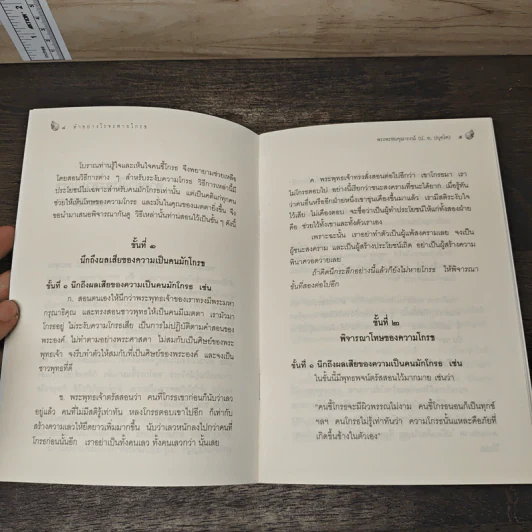 ๘ ทำอย่างไรจะหายโกรธ
โบราณท่านรู้ใจและเห็นใจคนขี้โกรธ จึงพยายามช่วยเหลือ
โดยสอนวิธีการต่าง ๆ สำหรับระงับความโกรธ วิธีการเหล่านี้มี
ประโยชน์ไม่เฉพาะสำหรับคนมักโกรธเท่านั้น แต่เป็นคติแก่ทุกคน
ช่วยให้เห็นโทษของความโกรธ และมั่นในคุณของเมตตายิ่งขึ้น จึง
ขอนำมาเสนอพิจารณากันดู วิธีเหล่านั้นท่านสอนไว้เป็นขั้น ๆ ดังนี้
ขั้นที่ ๑
นึกถึงผลเสียของความเป็นคนมักโกรธ
ขั้นที่ ๑ นึกถึงผลเสียของความเป็นคนมักโกรธ เช่น
ก. สอนตนเองให้นึกว่าพระพุทธเจ้าของเราทรงมีพระมหา
กรุณาธิคุณ และทรงสอนชาวพุทธให้เป็นคนมีเมตตา เรามัวมา
โกรธอยู่ ไม่ระงับความโกรธเสีย เป็นการไม่ปฏิบัติตามคำสอนของ
พระองค์ ไม่ทำตามอย่างพระศาสดา ไม่สมกับเป็นศิษย์ของพระ
พุทธเจ้า จงรีบทำตัวให้สมกับที่เป็นศิษย์ของพระองค์ และจงเป็น
ชาวพุทธที่ดี
ข. พระพุทธเจ้าตรัสสอนว่า คนที่โกรธเขาก่อนก็นับว่าเลว
อยู่แล้ว คนที่ไม่มีสติรู้เท่าทัน หลงโกรธตอบเขาไปอีก ก็เท่ากับ
สร้างความเลวให้ยืดยาวเพิ่มมากขึ้น นับว่าเลวหนักลงไปกว่าคนที่
โกรธก่อนนั้นอีก เราอย่าเป็นทั้งคนเลว ทั้งคนเลวกว่า นั้นเลย
พระพรหมคุณาภรณ์ (ป. อ. ปยุตฺโต) ๙
ค. พระพุทธเจ้าทรงสั่งสอนต่อไปอีกว่า เขาโกรธมา เรา
ไม่โกรธตอบไป อย่างนี้เรียกว่าชนะสงครามที่ชนะได้ยาก เมื่อรู้ทัน
ว่าคนอื่นหรืออีกฝ่ายหนึ่งเขาขุ่นเคืองขึ้นมาแล้ว เรามีสติระงับใจ
ไว้เสีย ไม่เคืองตอบ จะชื่อว่าเป็นผู้ทำประโยชน์ให้แก่ทั้งสองฝ่าย
คือ ช่วยไว้ทั้งเขาและทั้งตัวเราเอง
เพราะฉะนั้น เราอย่าทำตัวเป็นผู้แพ้สงครามเลย จงเป็น
ผู้ชนะสงคราม และเป็นผู้สร้างประโยชน์เถิด อย่าเป็นผู้สร้างความ
พินาศวอดวายเลย
ถ้าคิดนึกระลึกอย่างนี้แล้วก็ยังไม่หายโกรธ ให้พิจารณา
ขั้นที่สองต่อไปอีก
ขั้นที่ ๒
พิจารณาโทษของความโกรธ
ขั้นที่ ๑ นึกถึงผลเสียของความเป็นคนมักโกรธ เช่น
ในขั้นนี้มีพุทธพจน์ตรัสสอนไว้มากมาย เช่นว่า
“คนขี้โกรธจะมีผิวพรรณไม่งาม คนขี้โกรธนอนก็เป็นทุกข์
ฯลฯ คนโกรธไม่รู้เท่าทันว่า ความโกรธนั้นแหละคือภัยที่
เกิดขึ้นข้างในตัวเอง”